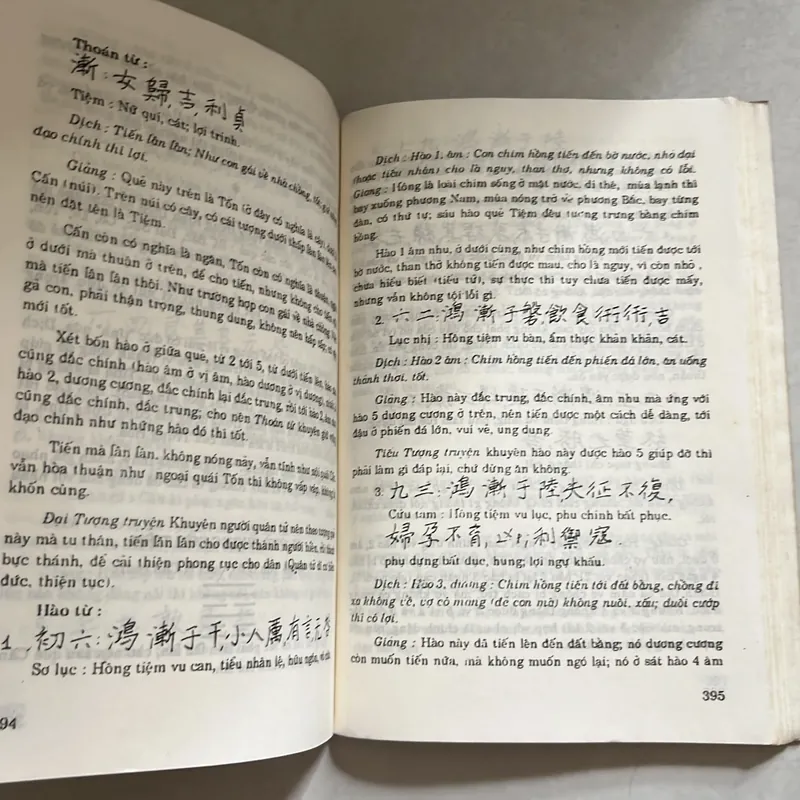 Thoán từ :
漸 : 女歸, 吉, 利貞
Tiệm : Nữ qui, cát; lợi trinh.
Dịch : Tiến lần lần; Như con gái về nhà chồng, tốt, giữ
đạo chính thì lợi.
Giảng : Quẻ này trên là Tốn (ở đây có nghĩa là cây), dưới là
Cấn (núi). Trên núi có cây, có cái tượng dưới thấp
nên đặt tên là Tiệm.
Cấn còn có nghĩa là ngăn, Tốn còn có nghĩa là thuận,
ở dưới mà thuận ở trên, để cho tiến, nhưng không cho tiến
mà tiến lần lần thôi. Như trường hợp con gái về nhà chồng
gả con, phải thận trọng, thung dung, không nên hấp tấp,
mới tốt.
Xét bốn hào ở giữa quẻ, từ 2 tới 5, từ dưới tiến lên,
cũng đắc chính (hào âm ở vị âm, hào dương ở vị dương),
hào 2, dương cương, đắc chính lại đắc trung, rồi tới hào 2, âm
cũng đắc chính, đắc trung; cho nên Thoán từ khuyên giữ
đạo chính như những hào đó thì tốt.
Tiến mà lần lần, không nóng nảy, vẫn tính như nội quái
vẫn hòa thuận như ngoại quái Tốn thì không vấp váp, không bị
khốn cùng.
Đại Tượng truyện Khuyên người quân tử nên theo tượng quẻ
này mà tu thân, tiến lần lần cho được thành người hiền, rồi thành
bực thánh, để cải thiện phong tục cho dân (Quân tử dĩ cư hiền
đức, thiện tục).
Hào từ :
1, 初六: 鴻漸于干, 小人厲, 有言, 无咎
Sơ lục : Hồng tiệm vu can, tiểu nhân lệ, hữu ngôn, vô cữu.
94
Dịch : Hào 1, âm : Con chim hồng tiến đến bờ nước, nhỏ dại
(hoặc tiểu nhân) cho là nguy, than thở, nhưng không có lỗi.
Giảng : Hồng là loài chim sống ở mặt nước, di thê, mùa lạnh thì
bay xuống phương Nam, mùa nóng trở về phương Bắc, bay từng
đàn, có thứ tự; sáu hào quẻ Tiệm đều tượng trưng bằng chim
hồng.
Hào 1 âm nhu, ở dưới cùng, như chim hồng mới tiến được tới
bờ nước, than thở không tiến được mau, cho là nguy, vì còn nhỏ,
chưa hiểu biết (tiểu tử), sự thực thì tuy chưa tiến được mấy,
nhưng vẫn không tội lỗi gì.
2. 六二: 鴻漸于磐, 飲食衎衎, 吉
Lục nhị : Hồng tiệm vu bàn, ẩm thực khản khản, cát.
Dịch : Hào 2 âm : Chim hồng tiến đến phiến đá lớn, ăn uống
thảnh thơi, tốt.
Giảng : Hào này đắc trung, đắc chính, âm nhu mà ứng với
hào 5 dương cương ở trên, nên tiến được một cách dễ dàng, tới
đậu ở phiến đá lớn, vui vẻ, ung dung.
Tiểu Tượng truyện khuyên hào này được hào 5 giúp đỡ thì
phải làm gì đáp lại, chứ đừng ăn không.
3. 九三: 鴻漸于陸, 夫征不復,
Cửu tam : Hồng tiệm vu lục, phu chinh bất phục.
婦孕不育, 凶; 利禦寇.
phụ dựng bất dục, hung; lợi ngự khấu.
Dịch : Hào 3, dương : Chim hồng tiến tới đất bằng, chồng đi
xa không về, vợ có mang (đẻ con mà) không nuôi, xấu; đuổi cướp
thì có lợi.
Giảng : Hào này đã tiến lên đến đất bằng; nó dương cương
còn muốn tiến nữa, mà không muốn ngó lại; nó ở sát hào 4 âm
395